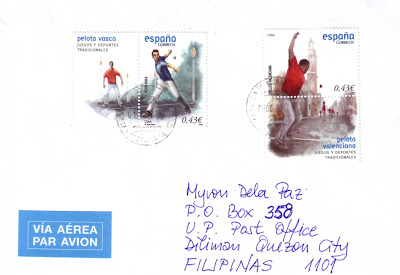 pelota vasca
JUEGOS Y DEPORTES
TRADICIONALES
españa
CORREOS
0,43€
españa
CORREOS
0,43€
pelota
valenciana
JUEGOS Y DEPORTES
TRADICIONALES
Myron Dela Paz
P.O. Box 358
U.P. Post Office
Diliman Quezon City
FILIPINAS 1101
VÍA AÉREA
PAR AVION